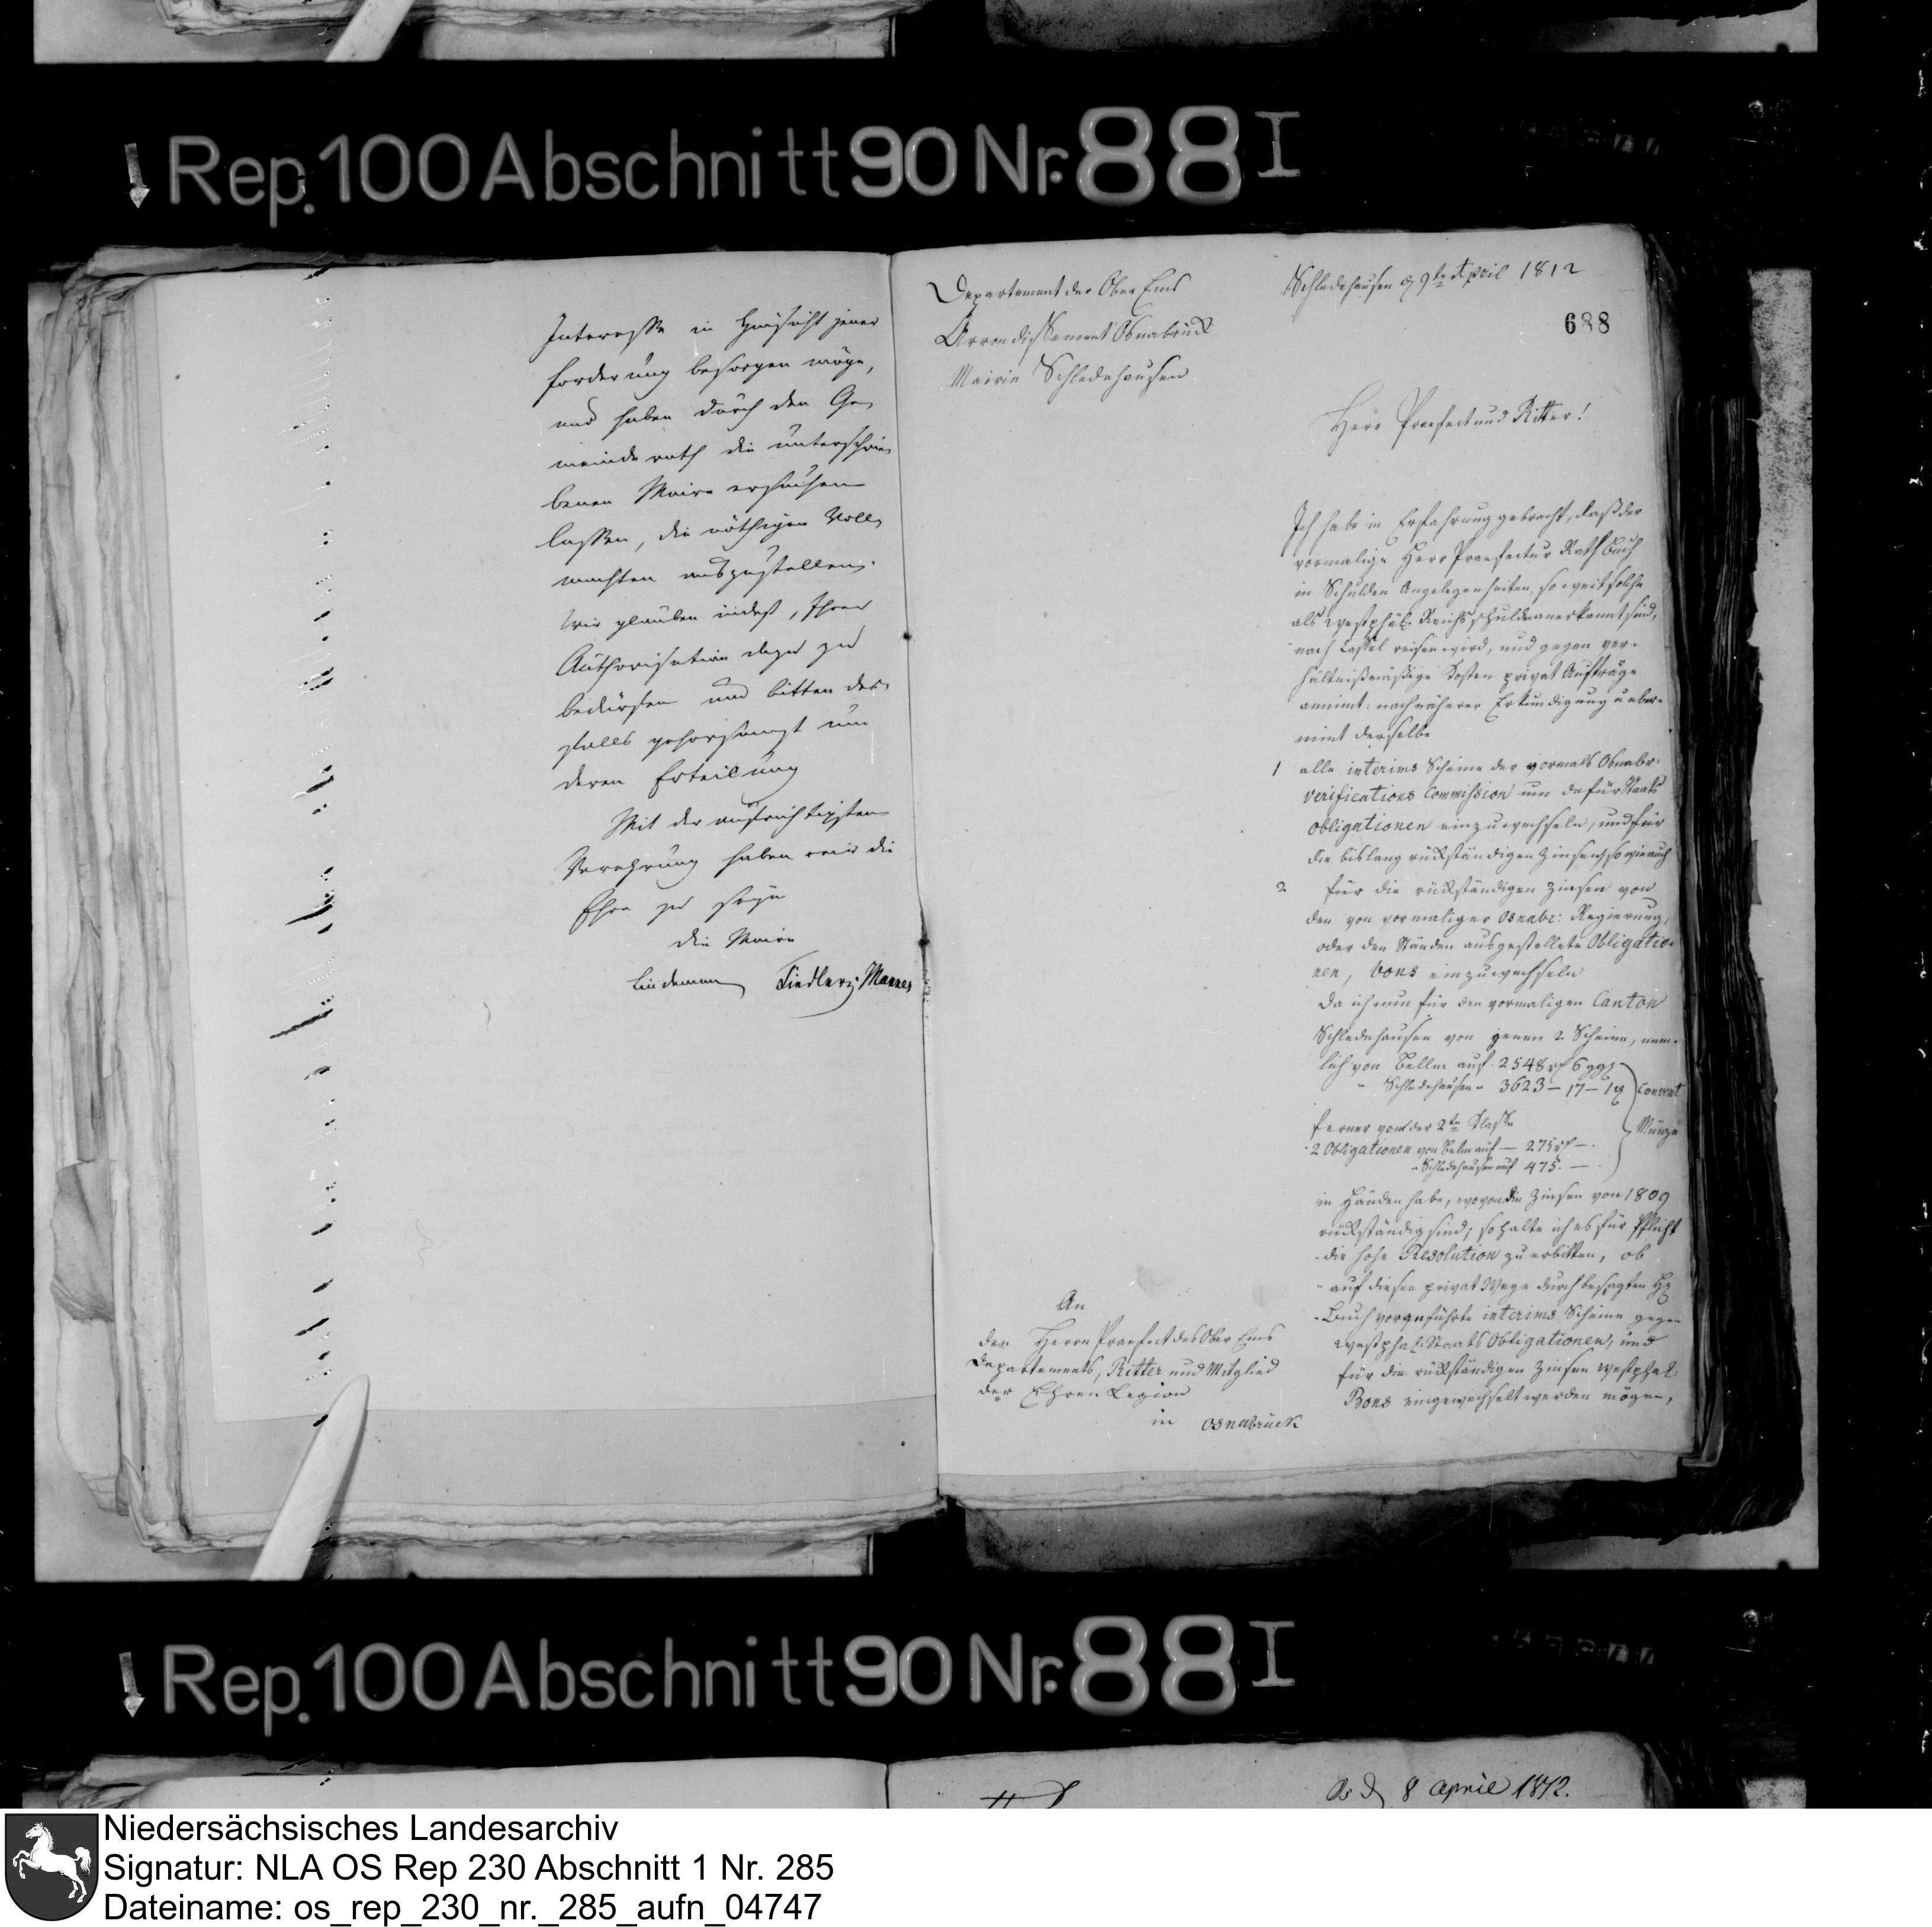 Rep. 100 Abschnitt 90 Nr. 88 I
Interesse in Hinsicht jener
forderung besorgen möge,
und haben durch den Ge
meinde rath die unterschrie
benen Maire ersuchen
lassen, die nöthigen Voll
machten auszustellen.
Wir glauben indeß, Ihrer
Authorisation dazu zu
bedürfen und bitten des
falls gehorsamst um
deren Erteilung
Mit der aufrichtigsten
Verehrung haben wir die
Ehre zu seyn
die Maire
Lindemann Tiedlerj. Mannes
Departement der Ober Ems
Arrondissement Osnabrück
Mairie Schledehausen
Schledehausen d 9te April 1812
688
Herr Praefect und Ritter!
Ich habe in Erfahrung gebracht, daß der
vormalige Herr Praefectur Rath Buch
in Schulden Angelegenheiten, so weit solche
als westphäl. Reichsschulden anerkannt sind,
nach Cassel reisen wird, und gegen ver-
hältnißmäßige Kosten privat Aufträge
annimt: nach näherer Erkundigung ueber-
nimt derselbe
1 alle interims Scheine der vormals Osnabr.
verifications Commission um dafür Staats
obligationen einzuwechseln, und für
die bislang rückständigen Zinsen, so wie auch
2 für die rückständigen Zinsen von
den von vormaliger Osnabr: Regierung,
oder den Ständen ausgestellete Obligatio-
nen, bons einzuwechseln
Da ich nun für den vormaligen Canton
Schledehausen von jenen 2 Scheine, nem-
lich von Bellm auf 2548 rt 6 ggr
" Schledehausen " 3623 – 17 – 1 Convent
ferner von der 2te Klasse Münze
2 Obligationen von Belm auf — 275 rt —
" Schledehausen auf 475. —
in Händen habe, wovon die Zinsen von 1809
rückständig sind; so halte ich es für Pflicht
die hohe Resolution zu erbitten, ob
auf diesen privat Wege durch besagten H
Buch vorgeführte interims Scheine gegen
westphal: Staats Obligationen, und
für die rückständigen Zinsen westphal.
Bons eingewechselt werden mögen,
An
den Herrn Praefect des Ober Ems
Departements, Ritter und Mitglied
der Ehren Legion
in Osnabrück
Rep. 100 Abschnitt 90 Nr. 88 I
8 April 1812.
Niedersächsisches Landesarchiv
Signatur: NLA OS Rep 230 Abschnitt 1 Nr. 285
Dateiname: os_rep_230_nr._285_aufn_04747